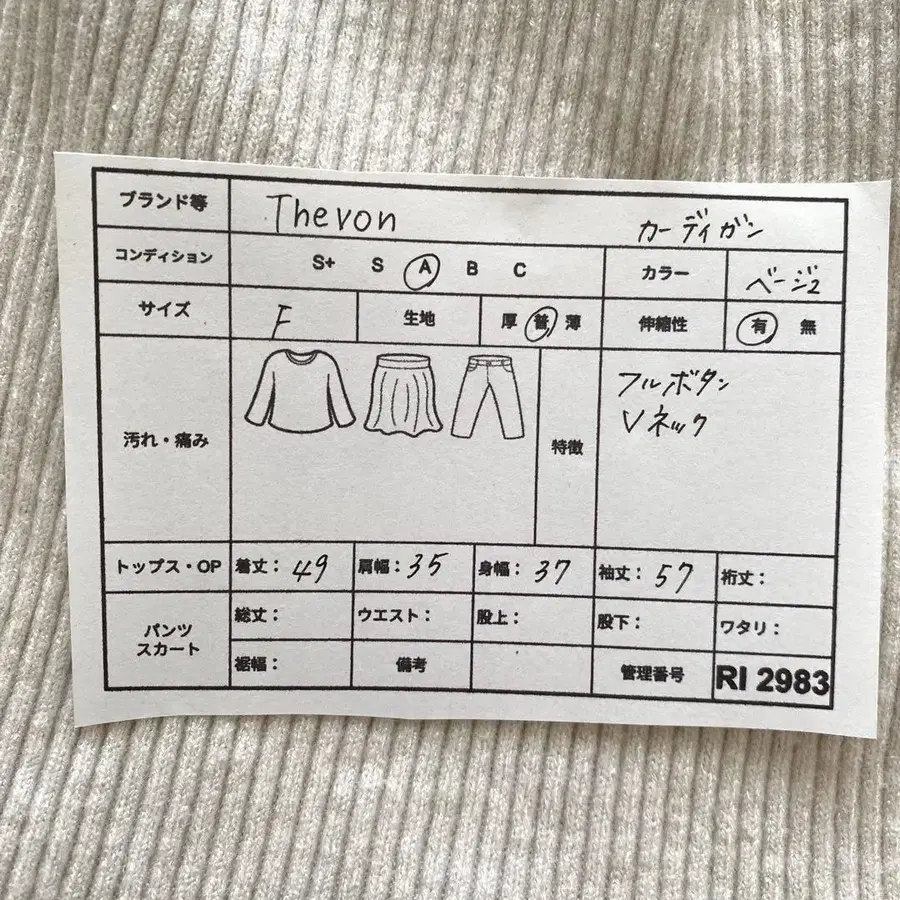 ブランド等 Thevon カーディガン
コンディション S+ S A B C カラー ベージュ
サイズ F 生地 厚 普 薄 伸縮性 有 無
汚れ・痛み 特徴 フルボタン
Vネック
トップス・OP 着丈: 49 肩幅: 35 身幅: 37 袖丈: 57 裄丈:
パンツ 総丈: ウエスト: 股上: 股下: ワタリ:
スカート 裾幅: 備考 管理番号 RI 2983